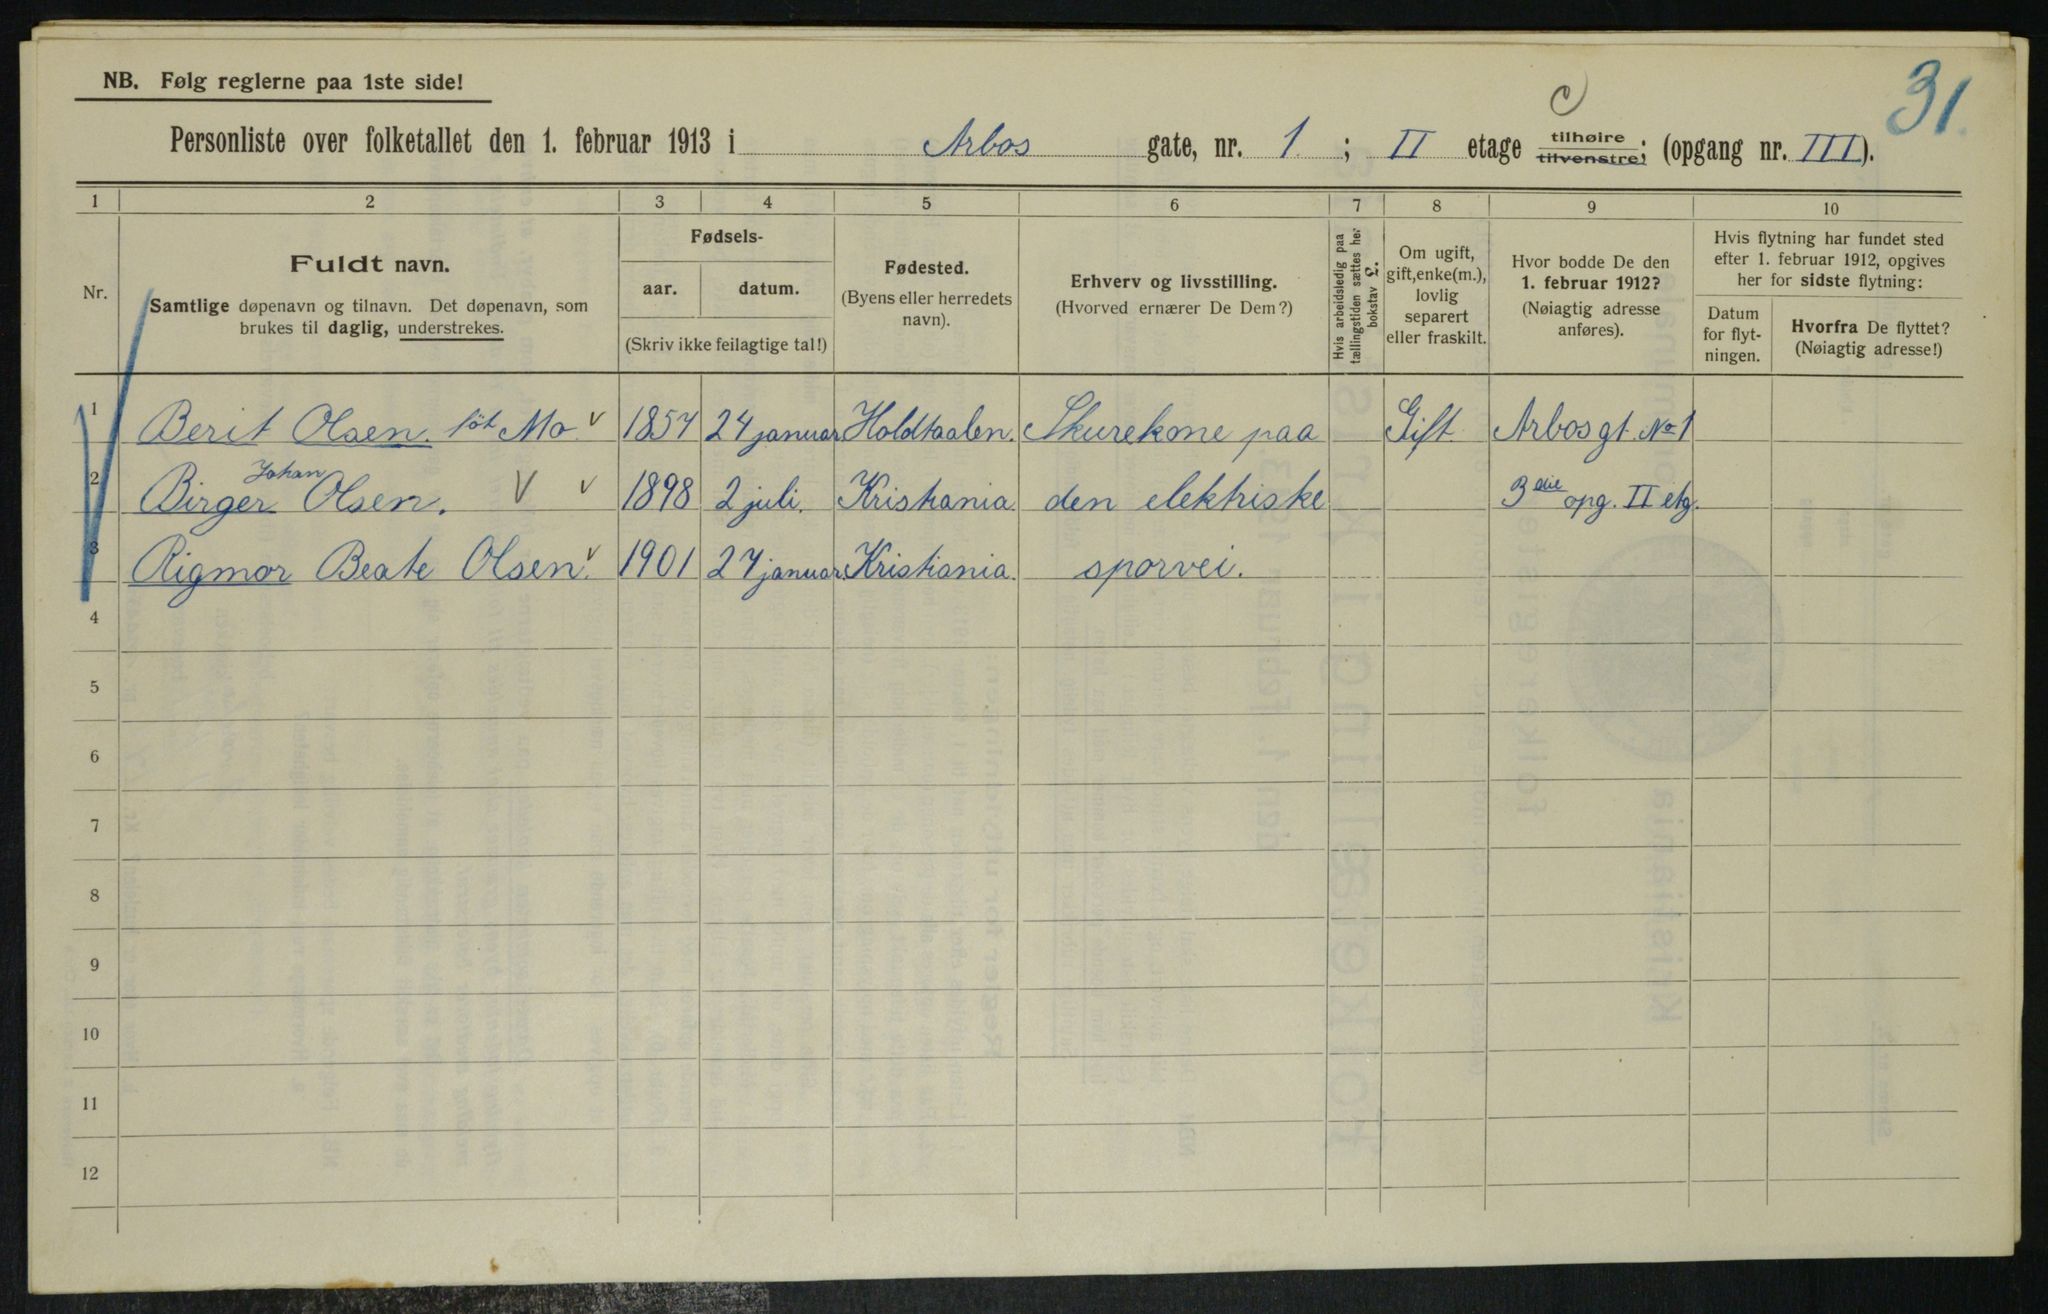 NB. Følg reglerne paa 1ste side!
31.
Personliste over folketallet den 1. februar 1913 i Arbos gate, nr. 1 ; II etage tilhøire tilvenstre; (opgang nr. III).
1 2 3 4 5 6 7 8 9 10
Nr.
Fuldt navn.
Samtlige døpenavn og tilnavn. Det døpenavn, som
brukes til daglig, understrekes.
Fødsels-
aar. datum.
(Skriv ikke feilagtige tal!)
Fødested.
(Byens eller herredets
navn).
Erhverv og livsstilling.
(Hvorved ernærer De Dem?)
Hvis arbeidsledig paa
tællingstiden sættes her
bokstav L.
Om ugift,
gift, enke(m.),
lovlig
separert
eller fraskilt.
Hvor bodde De den
1. februar 1912?
(Nøiagtig adresse
anføres).
Hvis flytning har fundet sted
efter 1. februar 1912, opgives
her for sidste flytning:
Datum
for flyt-
ningen.
Hvorfra De flyttet?
(Nøiagtig adresse!)
1 Berit Olsen. föt Mo v 1857 24 januar Holdtaalen. Skurekone paa Gift Arbosgt. No 1
2 Birger Johan Olsen. V v 1898 2 juli. Kristiania. den elektriske 3die opg. II etg.
3 Rigmor Beate Olsen. v 1901 27 januar. Kristiania. sporvei.
4
5
6
7
8
9
10
11
12